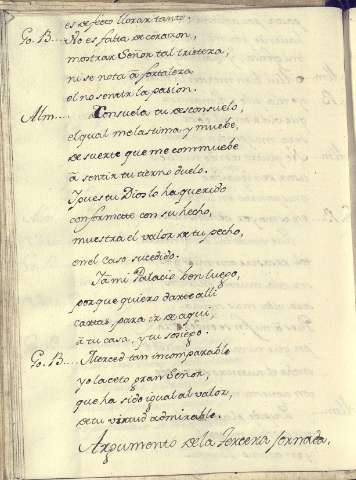 es defeto llorar tanto.
Go. B.... No es falta de corazon,
mostrar Señor tal tristeza,
ni se nota á fortaleza
el no sentir la pasion.
Alm..... Consuela tu desconsuelo,
el qual me lastima y muebe,
de suerte que me commuebe
á sentir tu tierno duelo.
Y pues tu Dios lo ha querido
conformate con su hecho,
muestra el valor de tu pecho,
en el caso sucedido.
Y a mi Palacio ben luego,
porque quiero darte alli
cartas para ir de aqui,
á tu casa, y tu sosiego.
Go. B.... Merced tan incomparable
yo la ceto gran Señor,
que ha sido igual al valor,
de tu virtud admirable.
Argumento de la Tercera Jornada.